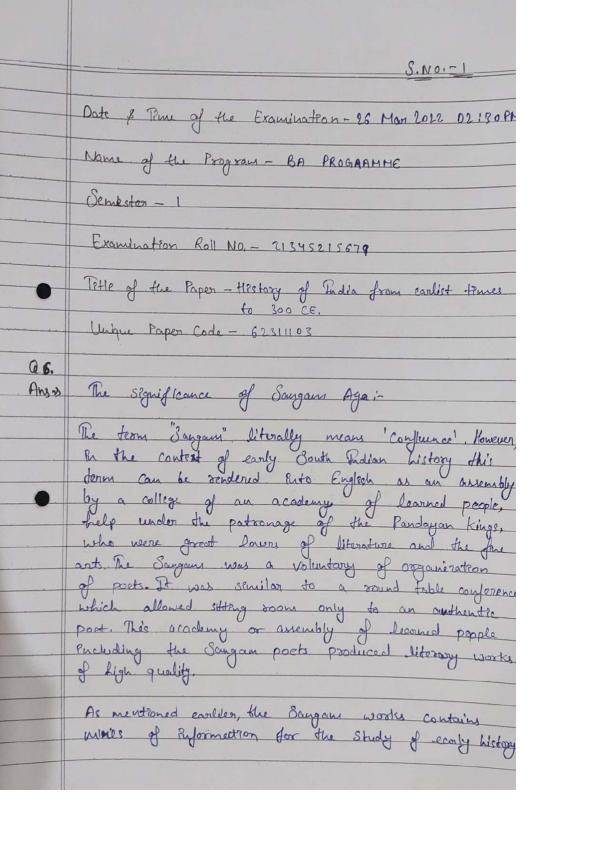 S.No.-1
Date & Time of the Examination - 26 Mar 2022 02:30 PM
Name of the Program - BA PROGRAMME
Semester - 1
Examination Roll No. - 21345215679
Title of the Paper - History of India from earlist times
to 300 CE.
Unique Paper Code - 62311103
Q 6.
Ans-> The significance of Sangam Age :-
The term "Sangam" literally means 'confluence'. However,
in the context of early South Indian history this
term can be rendered into English as an assembly
by a college of an academy of learned people,
help under the patronage of the Pandayan Kings,
who were great lovers of literature and the fine
arts. The Sangam was a voluntary of organization
of poets. It was similar to a round table conference
which allowed sitting room only to an authentic
poet. This academy or assembly of learned people
including the Sangam poets produced literary works
of high quality.
As mentioned earlier, the Sangam works contains
mines of information for the study of early history